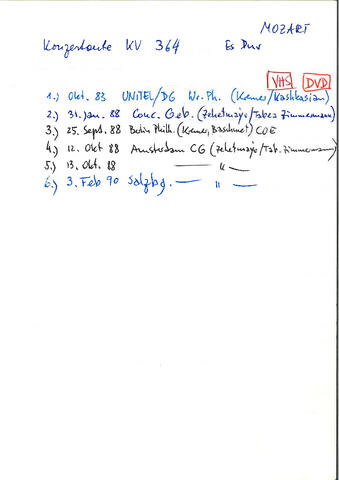 MOZART
Konzertante KV 364 Es Dur
VHS DVD
1.) Okt. 83 UNITEL/DG Wr. Ph. (Kremer/Kashkasian)
2.) 31. Jan. 88 Conc. Geb. (Zehetmair/Tabea Zimmermann)
3.) 25. Sept. 88 Berlin Philh. (Kremer, Bashmet) COE
4.) 12. Okt 88 Amsterdam CG (Zehetmair/Tab. Zimmermann)
5.) 13. Okt. 88 — " —
6.) 3. Feb 90 Salzbg. — " —